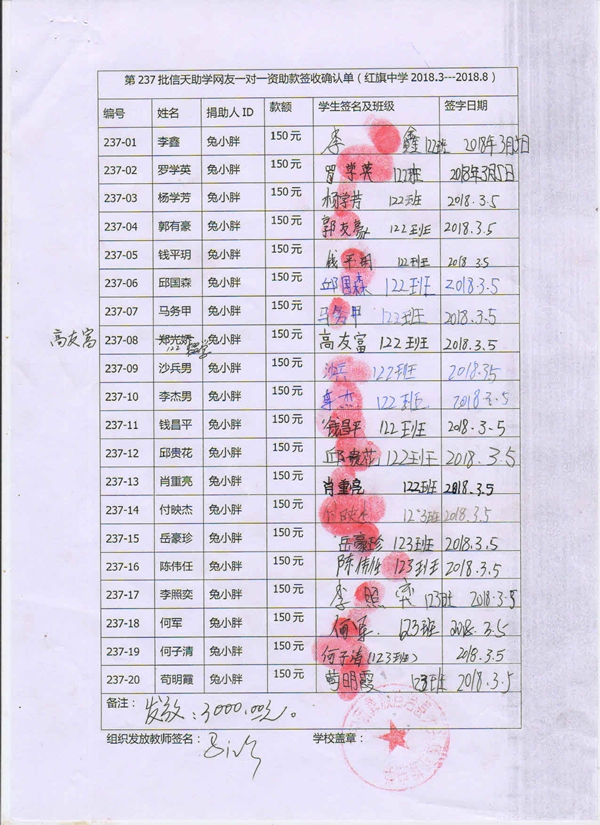 第237批信天助学网友一对一资助款签收确认单（红旗中学2018.3---2018.8）
编号 姓名 捐助人ID 款额 学生签名及班级 签字日期
237-01 李鑫 兔小胖 150元 李鑫 122班 2018年3月5日
237-02 罗学英 兔小胖 150元 罗学英 122班 2018年3月5日
237-03 杨学芳 兔小胖 150元 杨学芳 122班 2018.3.5
237-04 郭有豪 兔小胖 150元 郭友豪 122班 2018.3.5
237-05 钱平玥 兔小胖 150元 钱平玥 122班 2018 3.5
237-06 邱国森 兔小胖 150元 邱国森 122班 2018.3.5
237-07 马务甲 兔小胖 150元 马务甲 122班 2018.3.5
高友富 237-08 郑光娇 兔小胖 150元 高友富 122班 2018.3.5
122
237-09 沙兵男 兔小胖 150元 沙兵 122班 2018.3.5
237-10 李杰男 兔小胖 150元 李杰 122班 2018.3.5
237-11 钱昌平 兔小胖 150元 钱昌平 122班 2018.3.5
237-12 邱贵花 兔小胖 150元 邱贵花 122班 2018.3.5
237-13 肖重亮 兔小胖 150元 肖重亮 122班 2018.3.5
237-14 付映杰 兔小胖 150元 付映杰 123班 2018.3.5
237-15 岳豪珍 兔小胖 150元 岳豪珍 123班 2018.3.5
237-16 陈伟任 兔小胖 150元 陈伟任 123班 2018.3.5
237-17 李照奕 兔小胖 150元 李照奕 123班 2018.3.5
237-18 何军 兔小胖 150元 何军 123班 2018.3.5
237-19 何子清 兔小胖 150元 何子清（123班） 2018.3.5
237-20 苟明霞 兔小胖 150元 苟明霞 123班 2018.3.5
备注：
发放：3000.00元。
组织发放教师签名： 学校盖章：